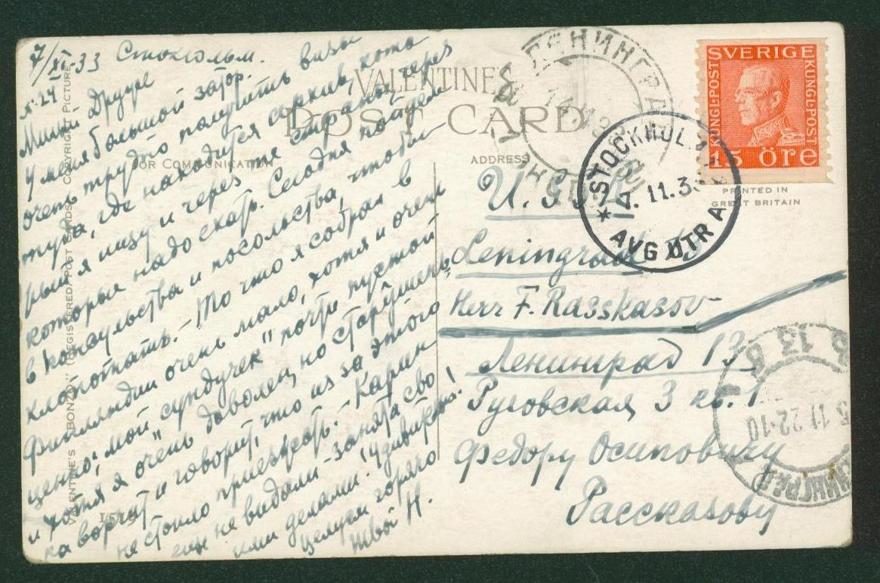 7/XI 33 Стокгольм.
Милый Друже
У меня большой затор.
очень трудно получить визы
туда, где находится архив, кото
рый я ищу и через те страны, через
которые надо ехать. Сегодня пойдем
в консульства и посольства, чтобы
клопотать. – То что я собрал в
Финляндии очень мало, хотя и очень
ценно; мой „сундучек" почти пустой
и хотя я очень доволен, но старушень
ка ворчит и говорит, что из за этого
не стоило приезжать. – Карин
еще не видали – занята сво
ими делами! Удивител.!
целуем горячо
твой Н.
VALENTINES
POST CARD
FOR COMMUNICATION
ADDRESS
PRINTED IN
GREAT BRITAIN
VALENTINE'S "BONZO" (REGISTERED) POST CARDS. COPYRIGHT PICTURE
SVERIGE
KUNGL: POST
KUNGL: POST
15 ÖRE
STOCKHOLM
11.33
AVG UTR
ЛЕНИНГРАД
U.S.S.R.
Leningrad 13
Herr F. Rasskasov
Ленинград 13
Руговская 3 кв. 1
Федору Осиповичу
Рассказову
11 22-10
ЛЕНИНГРАД